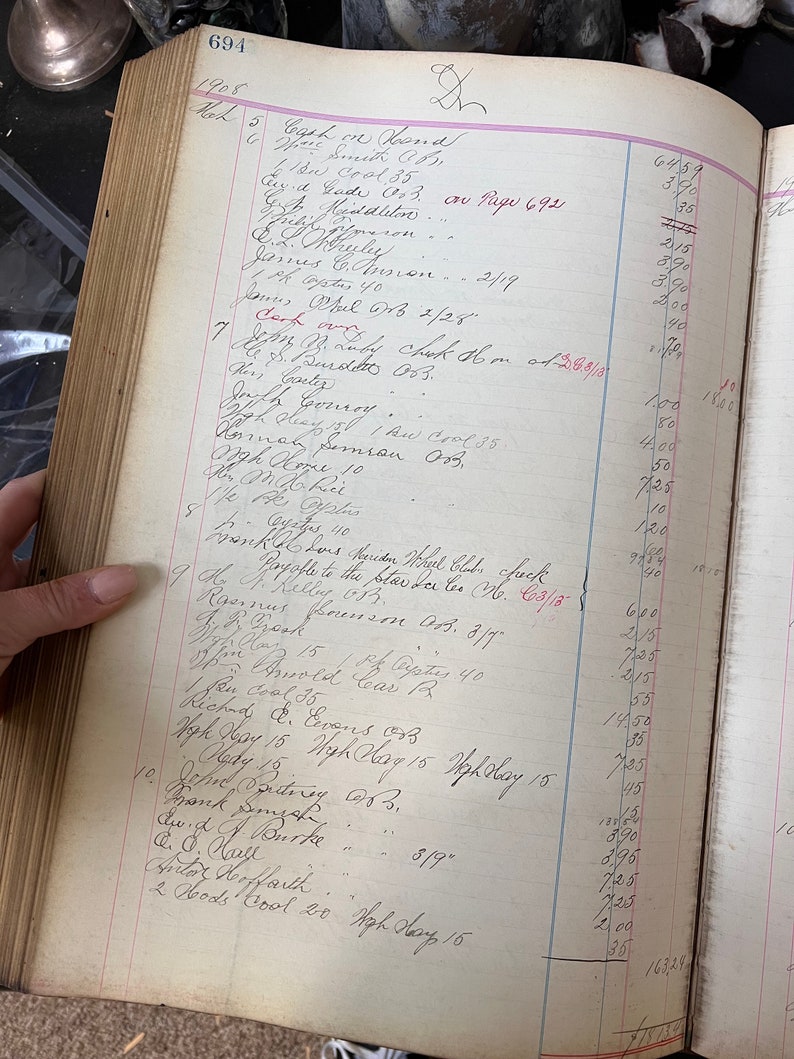 694
Dr
1908
Mch 5 Cash on Hand 64.59
6 Wm Smith OB. 3.90
1 Bu Coal 35 35
Ew.d Eade OB. on Page 692 2.15
E. F. Middleton " " 2.15
Philip " " 3.90
E. L. Wheeler " " 3.90
James C. " " 2/19 2.00
1 Pk Oysters 40 40
James O'Neil OB 2/28"
Cash over 70
7 John N. Luby check on 3/13 18.00
H. S. Burdett OB. 1.00
Carter " " 80
Joseph Conroy " " 4.00
Wgh Hay 15 1 Bu Coal 35 50
Herman Simson OB. 7.25
Wgh Horse 10 10
M. H. Rice " " 1.20
1/2 Pk Oysters 60
8 1 " Oysters 40 40
Frank Meriden Wheel Clubs check
Payable to the Star Ice Co C3/13 6.00
9 H. F. Kelley OB. 2.15
Rasmus Sorenson OB. 3/7" 7.25
" " 2.15
Wgh Hay 15 1 Pk Oysters 40 55
Wm Arnold Car R 14.50
1 Bu Coal 35 35
Richard E. Evans OB 7.25
Wgh Hay 15 Wgh Hay 15 Wgh Hay 15 45
" Hay 15 15
10 John Pitney OB. 3.90
Frank Simson " " 3.95
Ew.d J. Burke " " 3/9" 7.25
E. E. Hall " " 7.25
Anton Hoffarth " " 2.00
2 Hods Coal 20 Wgh Hay 15 35
163.24